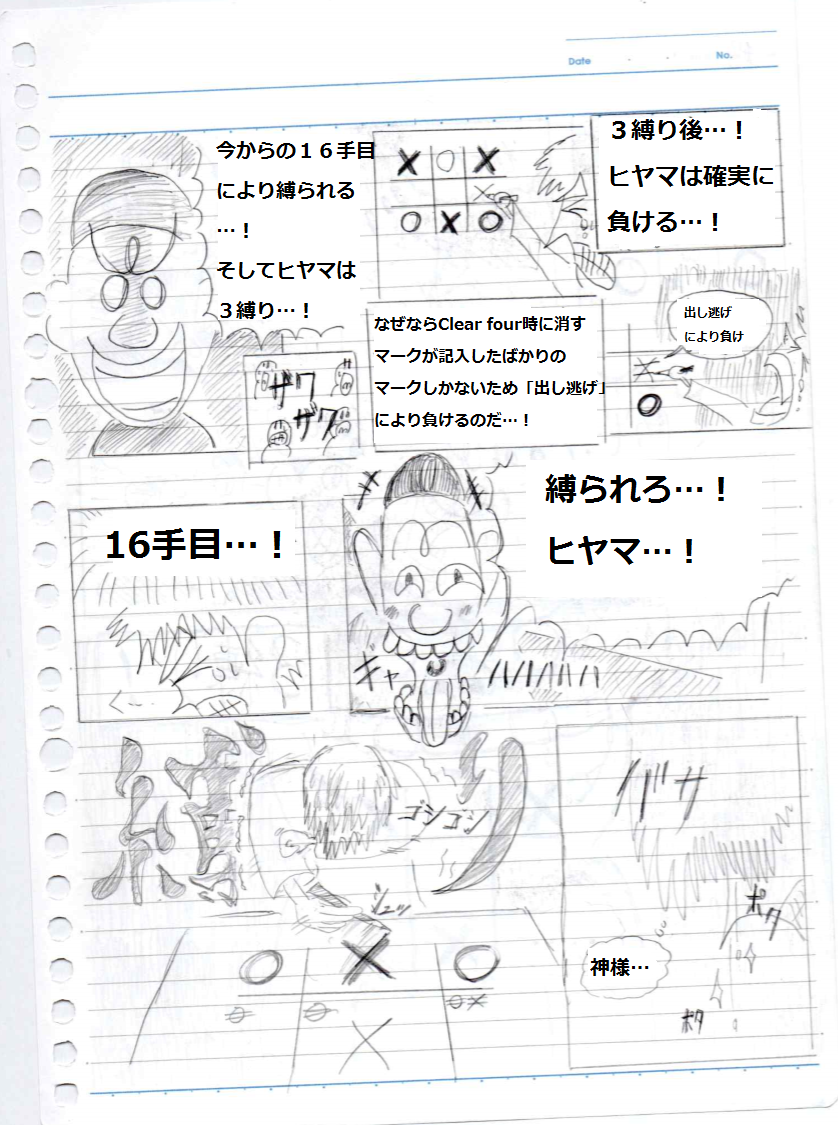 Date
No.
３縛り後…！
ヒヤマは確実に
負ける…！
今からの１６手目
により縛られる
…！
そしてヒヤマは
３縛り…！
出し逃げ
により負け
なぜならClear four時に消す
マークが記入したばかりの
マークしかないため「出し逃げ」
により負けるのだ…！
ザワ
ザワ
縛られろ…！
ヒヤマ…！
16手目…！
ギャ
バサ
ゴシゴシ
シュッ
ポタ
神様…
ポタ